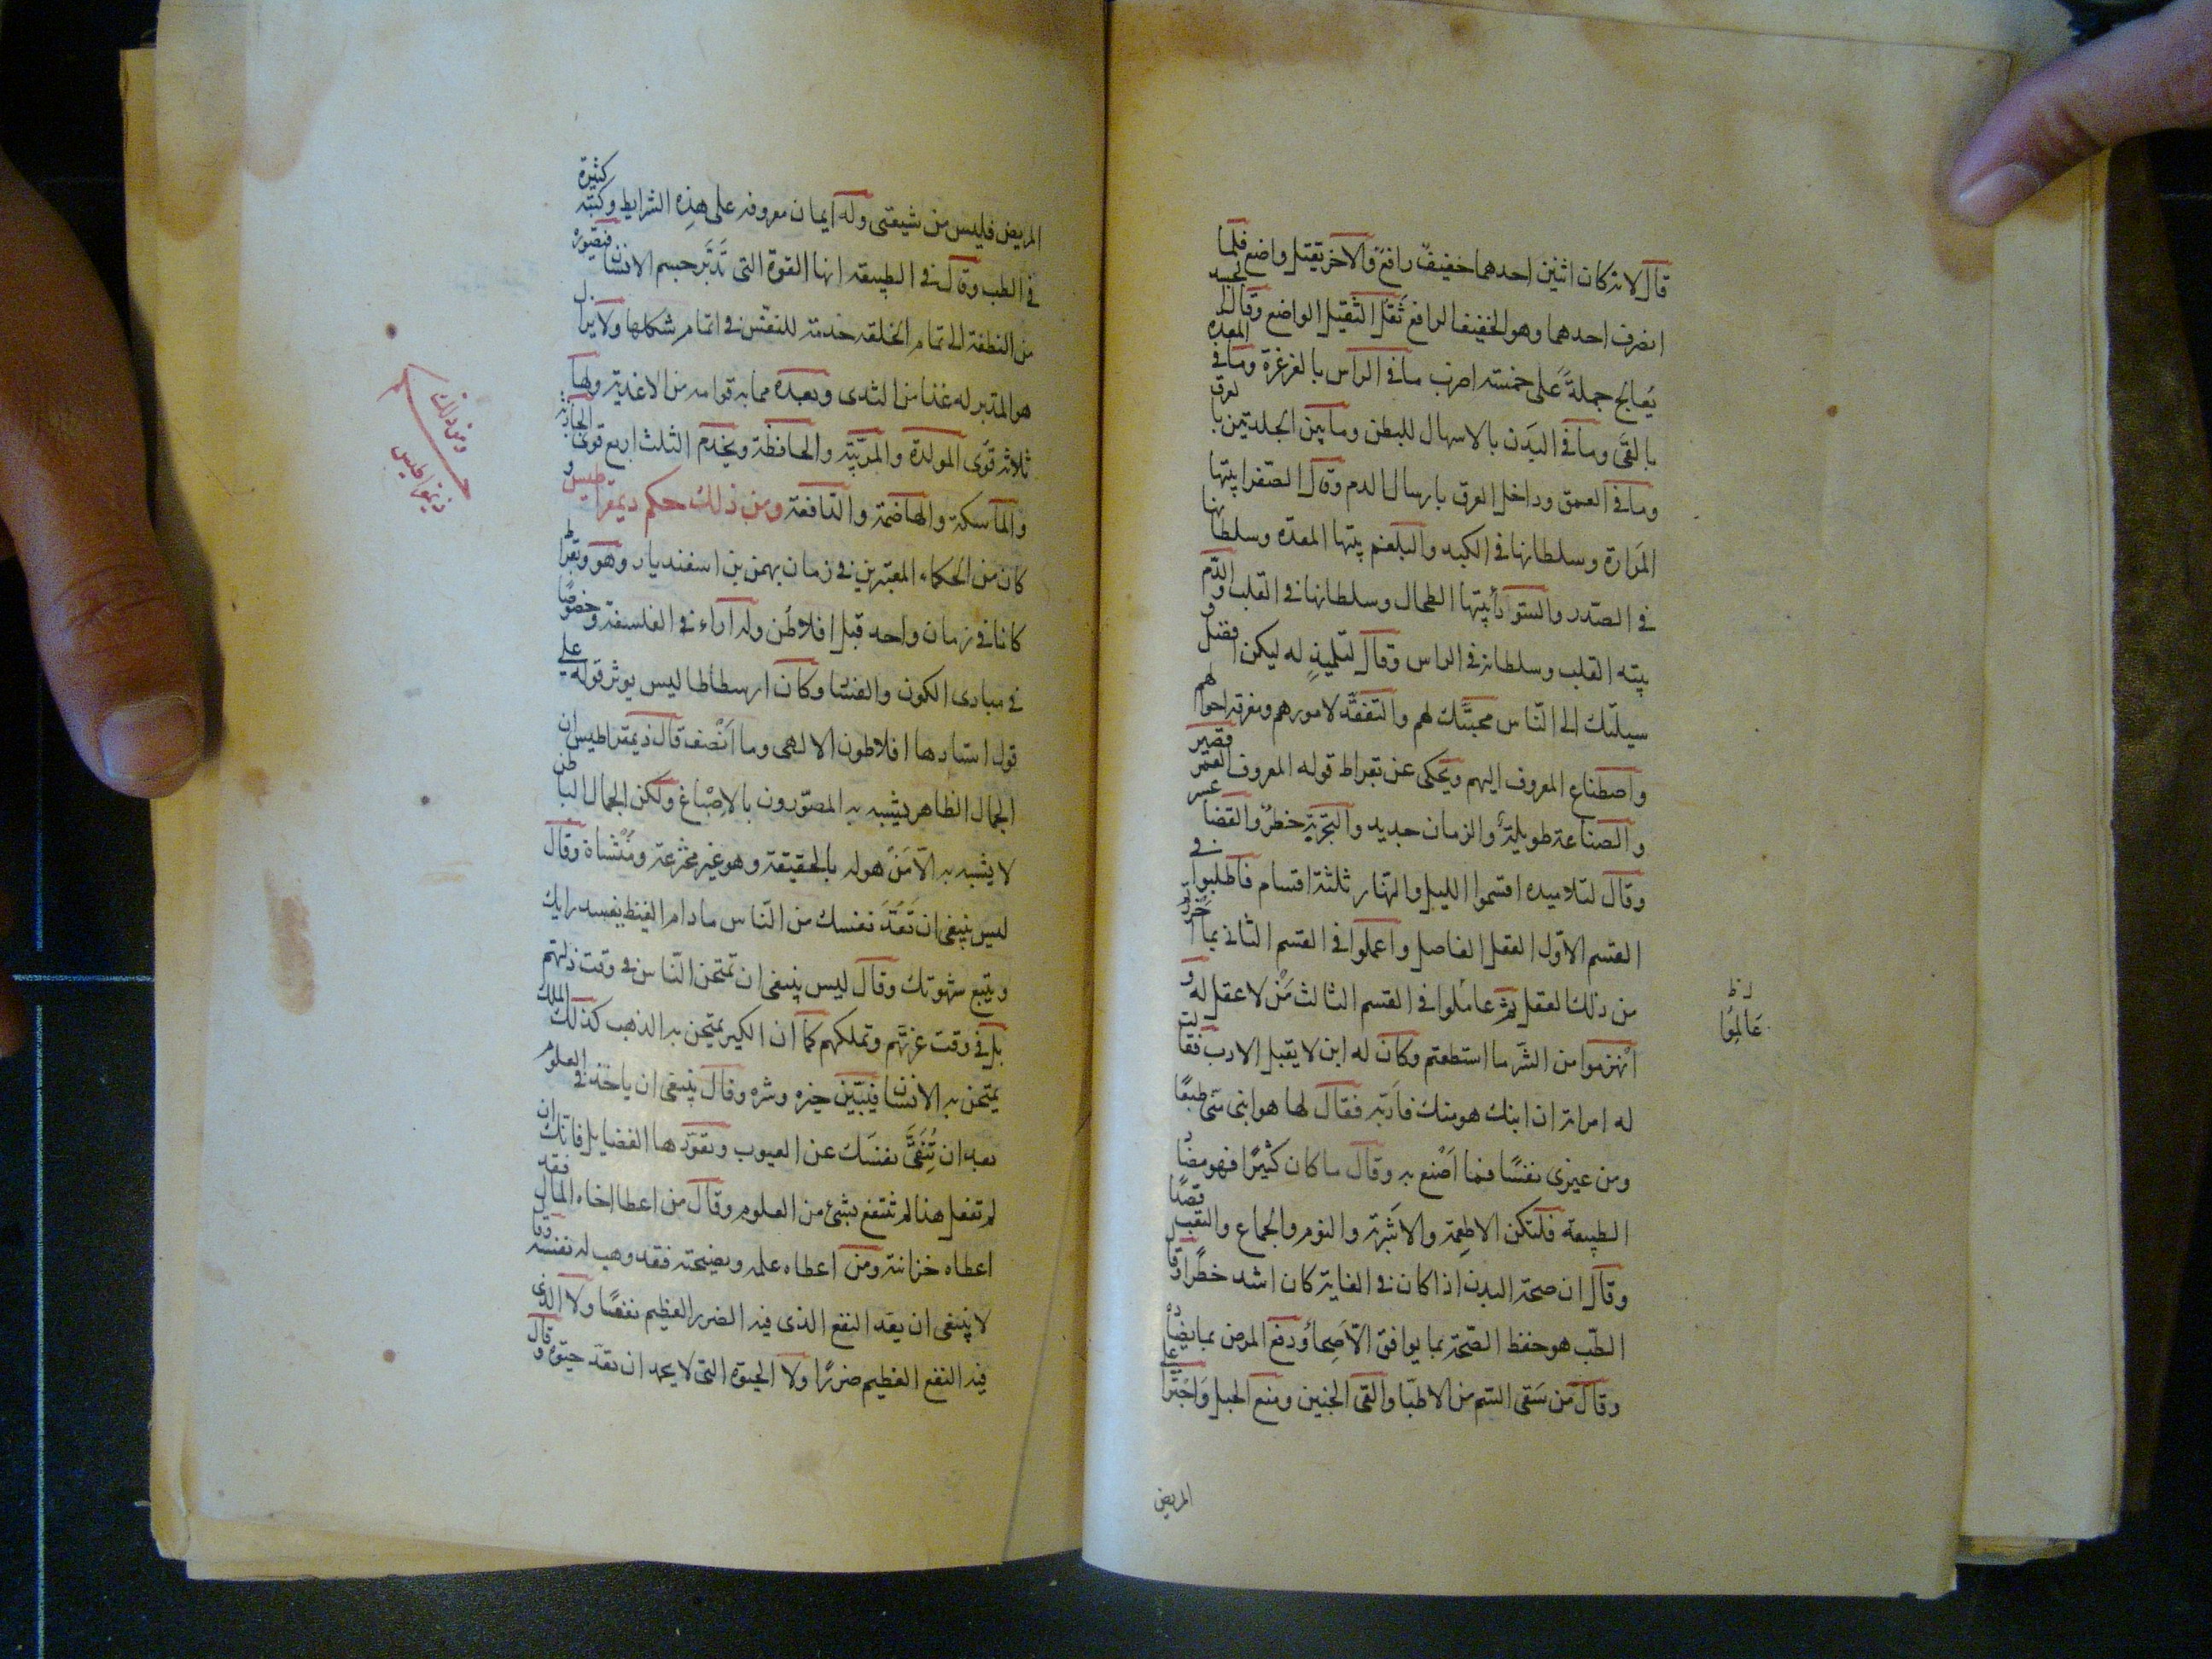 قال لانه كان اثنين احدهما خفيف رافع والاخر ثقيل واضع فلما
انصرف احدهما وهو الخفيف الرافع ثقل الثقيل الواضع وقال الجسد
يعالج جملة على خمسة اضرب ما في الراس بالغرغرة وما في المعدة
بالقى وما في البدن بالاسهال للبطن وما بين الجلدتين بالعرق
وما في العمق وداخل العرق بارسال الدم وقال الصفرا بيتها
المرارة وسلطانها في الكبد والبلغم بيتها المعدة وسلطانها
في الصدر والسودا بيتها الطحال وسلطانها في القلب والدم
بيته القلب وسلطانه في الراس وقال لتلميذ له ليكن افضل
وسيلتك الى الناس محبتك لهم والتفقد لامورهم ومعرفة احوالهم
واصطناع المعروف اليهم ويحكى عن بقراط قوله المعروف العمر قصير
والصناعة طويلة والزمان جديد والتجربة خطر والقضا عسر
وقال لتلاميذه اقسموا الليل والنهار ثلثة اقسام فاطلبوا في
القسم الاول العقل الفاضل واعملوا في القسم الثاني بما احرزتم
من ذلك العقل ثم عاملوا في القسم الثالث من لا عقل له و
انهزموا من الشر ما استطعتم وكان له ابن لا يقبل الادب فقالت
له امراته ان ابنك هو منك فادبه فقال لها هو ابنى منى طبعا
ومن غيرى نفسا فما اصنع به وقال ما كان كثيرا فهو مضاد
الطبيعة فلتكن الاطعمة والاشربة والنوم والجماع والتعب قصدا
وقال ان صحة البدن اذا كان في الغاية كان اشد خطرا وقال
الطب هو حفظ الصحة بما يوافق الاصحا ودفع المرض بما يضاده
وقال من سقى السم من الاطبا والقى الجنين ومنع الحبل واجترا على
المريض
عالموا
المريض فليس من شيعتى وله ايمان معروفة على هذه الشرايط وكتبه كثيرة
في الطب وقال في الطبيعة انها القوة التى تدبر جسم الانسان فتصوره
من النطفة الى تمام الخلقة خدمة للنفس في اتمام شكلها ولا يزال
هو المدبر له غذا من الثدى وبعده مما به قوامه من الاغذية ولها
ثلاثة قوى المولدة والمربية والحافظة ويخدم الثلث اربع قوى الجاذبة
والماسكة والهاضمة والدافعة ومن ذلك حكم ديمقراطيس و
كان من الحكماء المعتبرين في زمان بهمن بن اسفنديار وهو وبقراط
كانا في زمان واحد قبل افلاطن وله اراء في الفلسفة وخصوصا
في مبادى الكون والفسا وكان ارسطاطاليس يوثر قوله على
قول استادها افلاطون الالهى وما انصف قال ذيمقراطيس ان
الجمال الظاهر يشبه به المصورون بالاصباغ ولكن الجمال الباطن
لا يشبه به الا من هو له بالحقيقة وهو غير مخترعه ومنشاه وقال
ليس ينبغى ان تعد نفسك من الناس ما دام الغيظ يفسد رايك
ويتبع شهوتك وقال ليس ينبغى ان تمتحن الناس في وقت ذلتهم
بل في وقت عزتهم وتملكهم كما ان الكير يمتحن به الذهب كذلك الملك
يمتحن به الانسان فيتبين خيره وشره وقال ينبغى ان ياخذ في العلوم
بعد ان تنقى نفسك عن العيوب وتعودها الفضايل فانك ان
لم تفعل هذا لم تنتفع بشئ من العلوم وقال من اعطا اخاه المال فقد
اعطاه خزانته ومن اعطاه علمه ونصيحته فقد وهب له نفسه وقا
لا ينبغى ان يعد النفع الذى فيه الضرر العظيم نفعا ولا الذى
فيه النفع العظيم ضررا ولا الحيوة التى لا يحمد ان تعد حيوة وقال
ومن ذلك
ذيمقراطيس